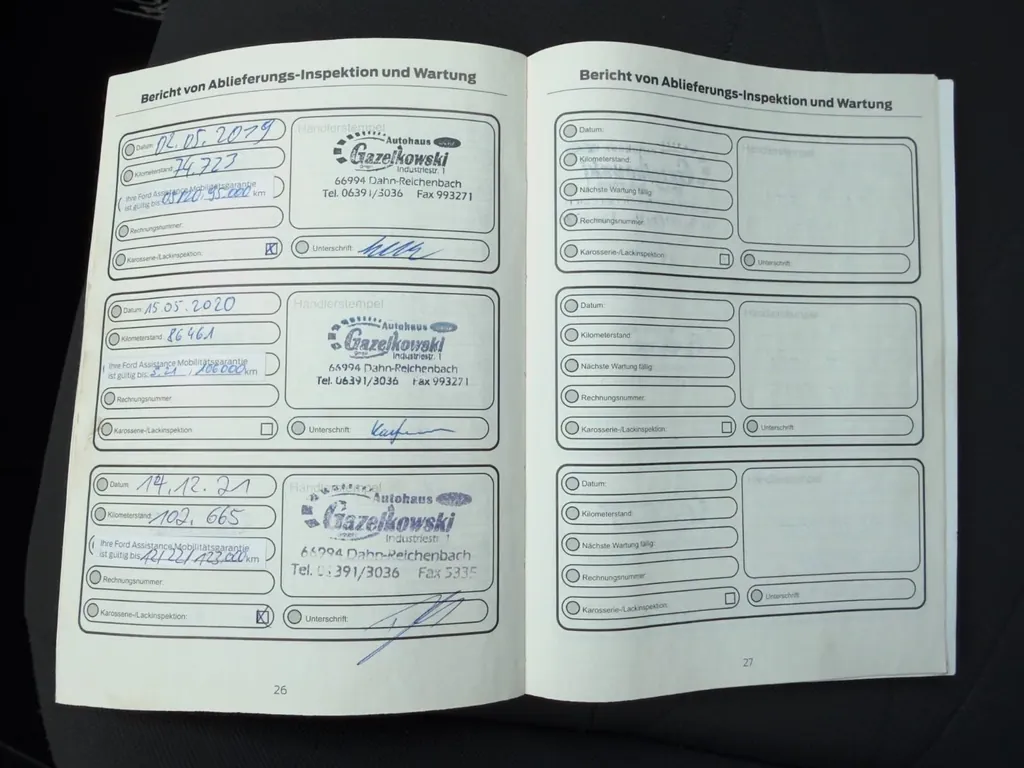 Bericht von Ablieferungs-Inspektion und Wartung
Datum: 02.05.2019
Händlerstempel
Kilometerstand: 74.723
Ihre Ford Assistance Mobilitätsgarantie
ist gültig bis: 05/20, 95.000 km
Rechnungsnummer:
Karosserie-/Lackinspektion: X
Autohaus Ford
Gazelkowski
Industriestr. 1
66994 Dahn-Reichenbach
Tel. 06391/3036 Fax 993271
Unterschrift:
Datum: 15.05.2020
Händlerstempel
Kilometerstand: 86461
Ihre Ford Assistance Mobilitätsgarantie
ist gültig bis: 5.21, 106000 km
Rechnungsnummer:
Karosserie-/Lackinspektion:
Autohaus Ford
Gazelkowski
GmbH Industriestr. 1
66994 Dahn-Reichenbach
Tel. 06391/3036 Fax 993271
Unterschrift:
Datum: 14.12.21
Kilometerstand: 102.665
Ihre Ford Assistance Mobilitätsgarantie
ist gültig bis: 12/22/123.000 km
Rechnungsnummer:
Karosserie-/Lackinspektion: X
Autohaus
Gazelkowski
Industriestr. 1
66994 Dahn-Reichenbach
Tel. 06391/3036 Fax 5335
Unterschrift:
26
Bericht von Ablieferungs-Inspektion und Wartung
Datum:
Kilometerstand:
Nächste Wartung fällig:
Rechnungsnummer:
Karosserie-/Lackinspektion:
Händlerstempel
Unterschrift:
Datum:
Kilometerstand:
Nächste Wartung fällig:
Rechnungsnummer:
Karosserie-/Lackinspektion:
Händlerstempel
Unterschrift:
Datum:
Kilometerstand:
Nächste Wartung fällig:
Rechnungsnummer:
Karosserie-/Lackinspektion:
Händlerstempel
Unterschrift:
27